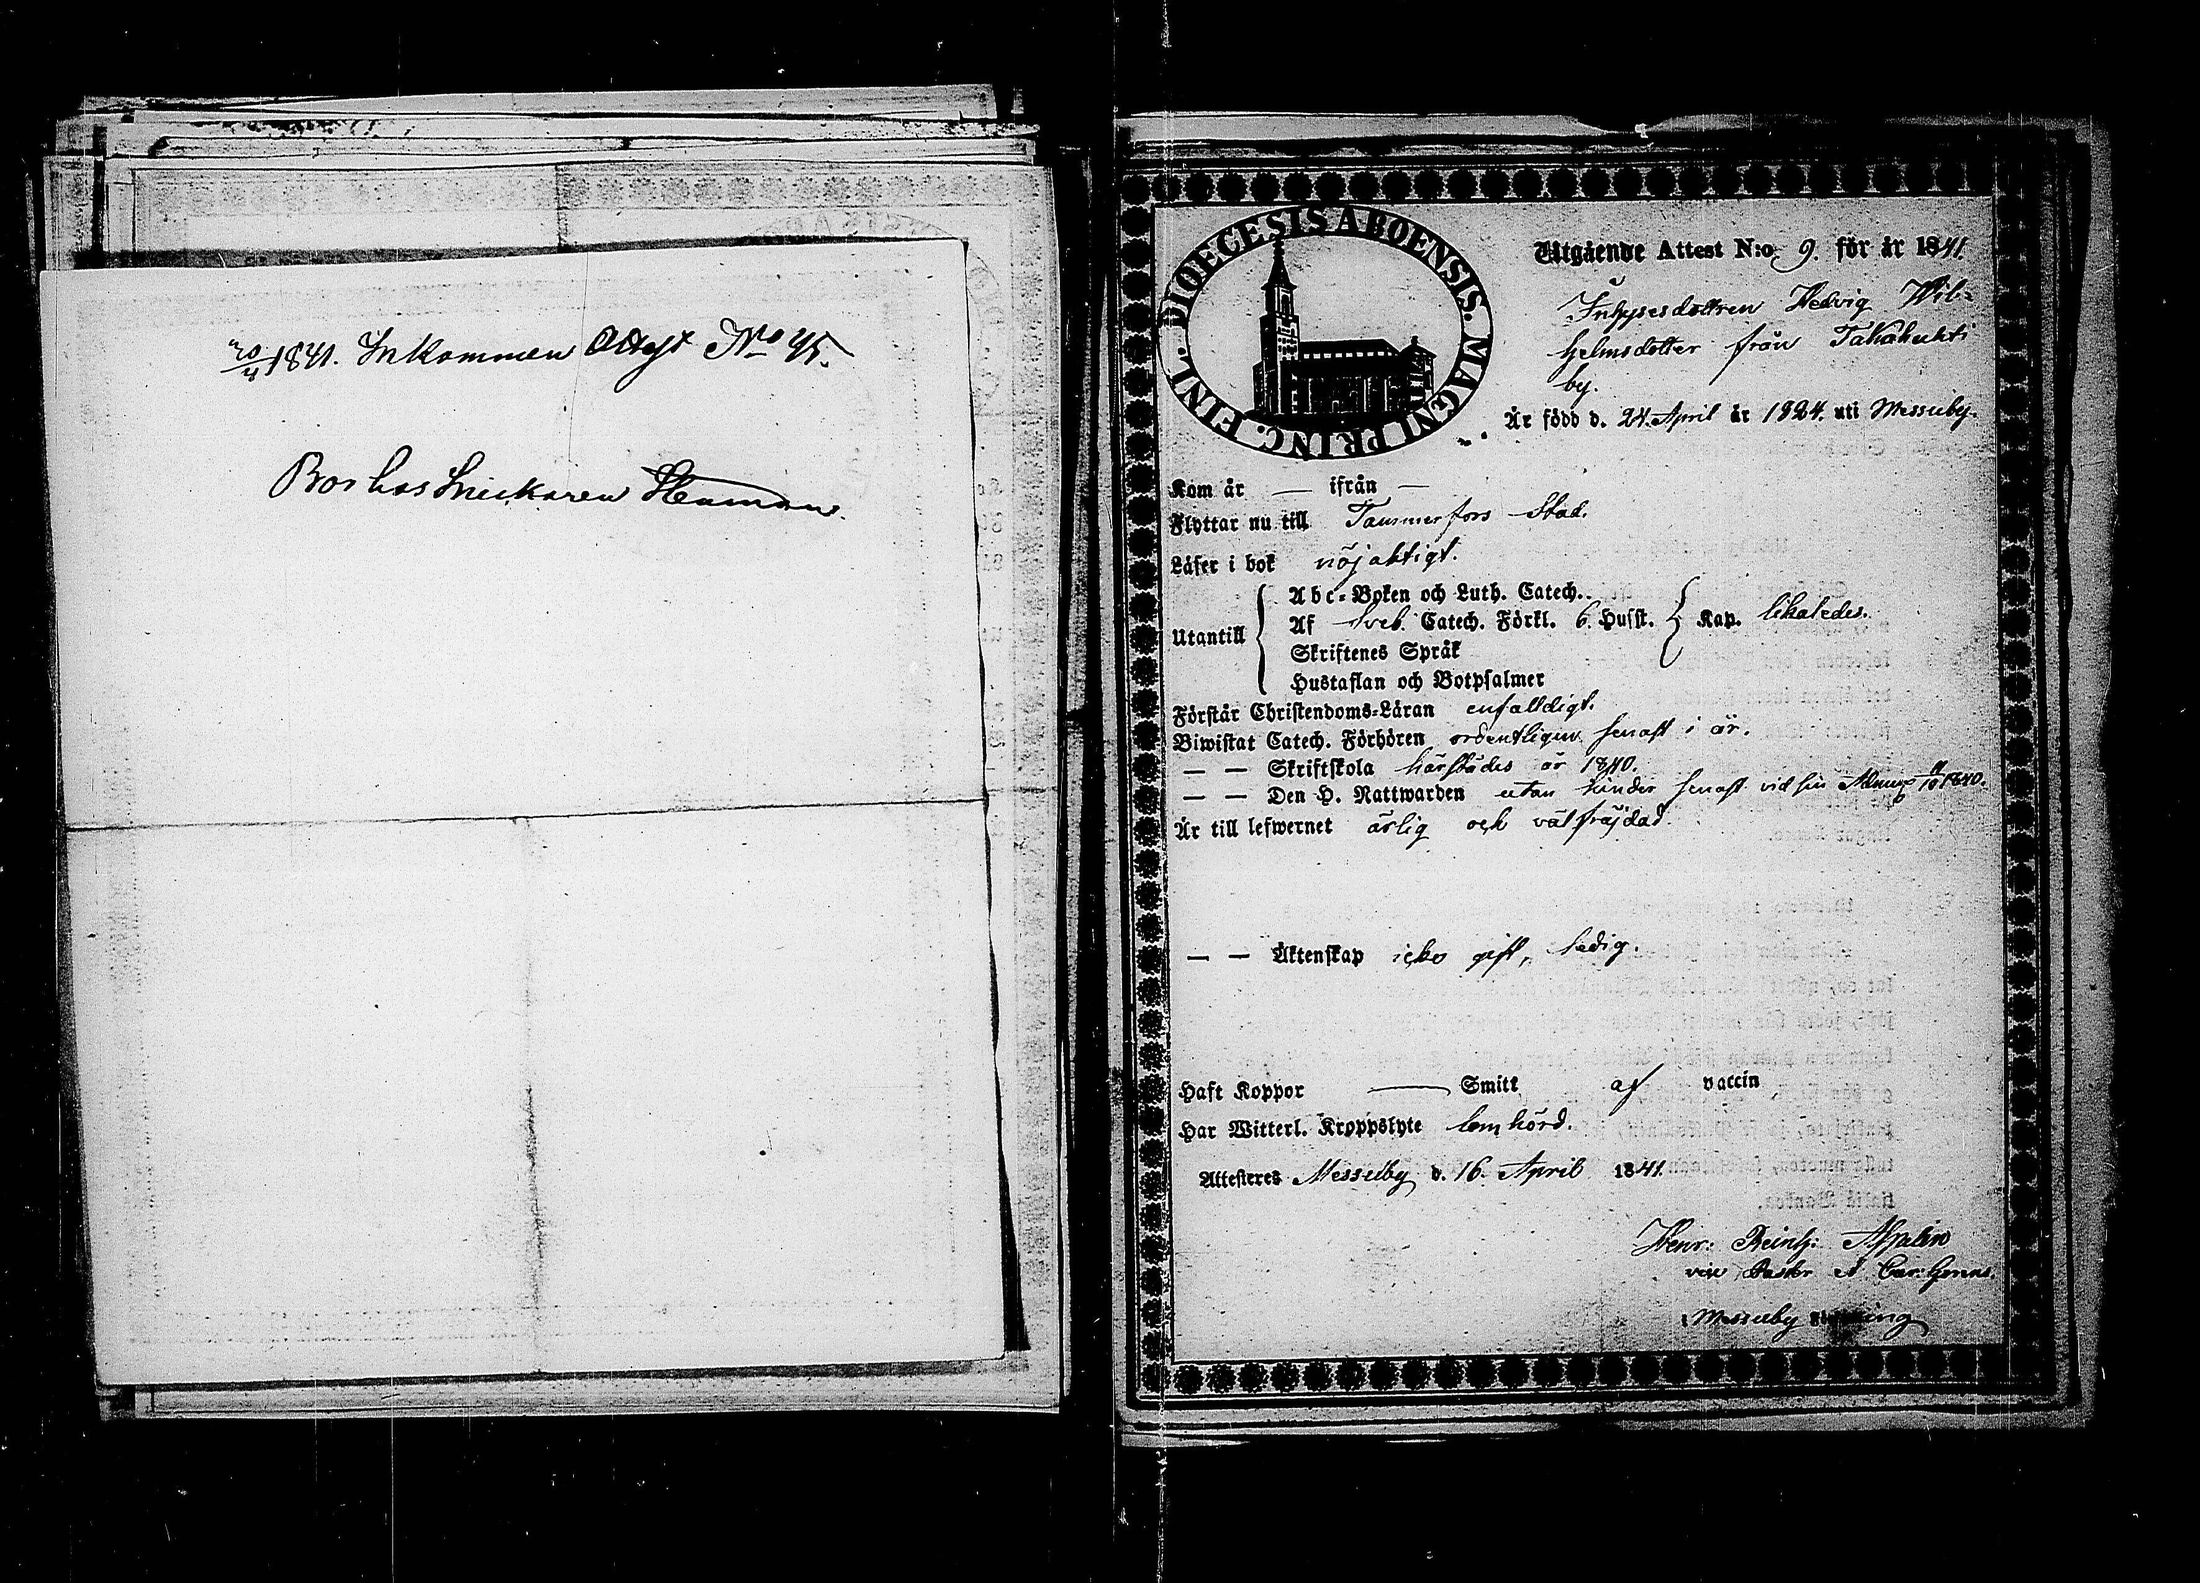 20/4 1841. Inkommen Attest No 45.
Bor hos Snickaren
DIOECESIS ABOENSIS. MAGNI PRINC. FINL.
Utgående Attest N:o 9. för år 1841.
Inhysesdottren Hedvig Wil=
helmsdotter från Takahuhti
by.
Är född d. 24. April år 1824. uti Messuby.
Kom år — ifrån —
Flyttar nu till Tammerfors Stad.
Läser i bok nöjaktigt.
Utantill
Abc-Boken och Luth. Catech.
Af Sveb. Catech. Förkl. 6. Husst. Kap. likaledes.
Skriftenes Språk
Hustaflan och Botpsalmer
Förstår Christendoms-Läran enfalldigt.
Biwistat Catech. Förhören ordentligen senast i år.
— — Skriftskola härstädes år 1840.
— — Den H. Nattwarden utan hinder senast vid sin 1840.
Är till lefwernet ärlig och välfräjdad.
— — Äktenskap icke gift, ledig.
Haft Koppor — Smitt af vaccin
Har Witterl. Kroppslyte lomhörd.
Attesteres Messuby d. 16. April 1841.
Henr: Reinh: Aspelin
vice Pastor et
Messuby